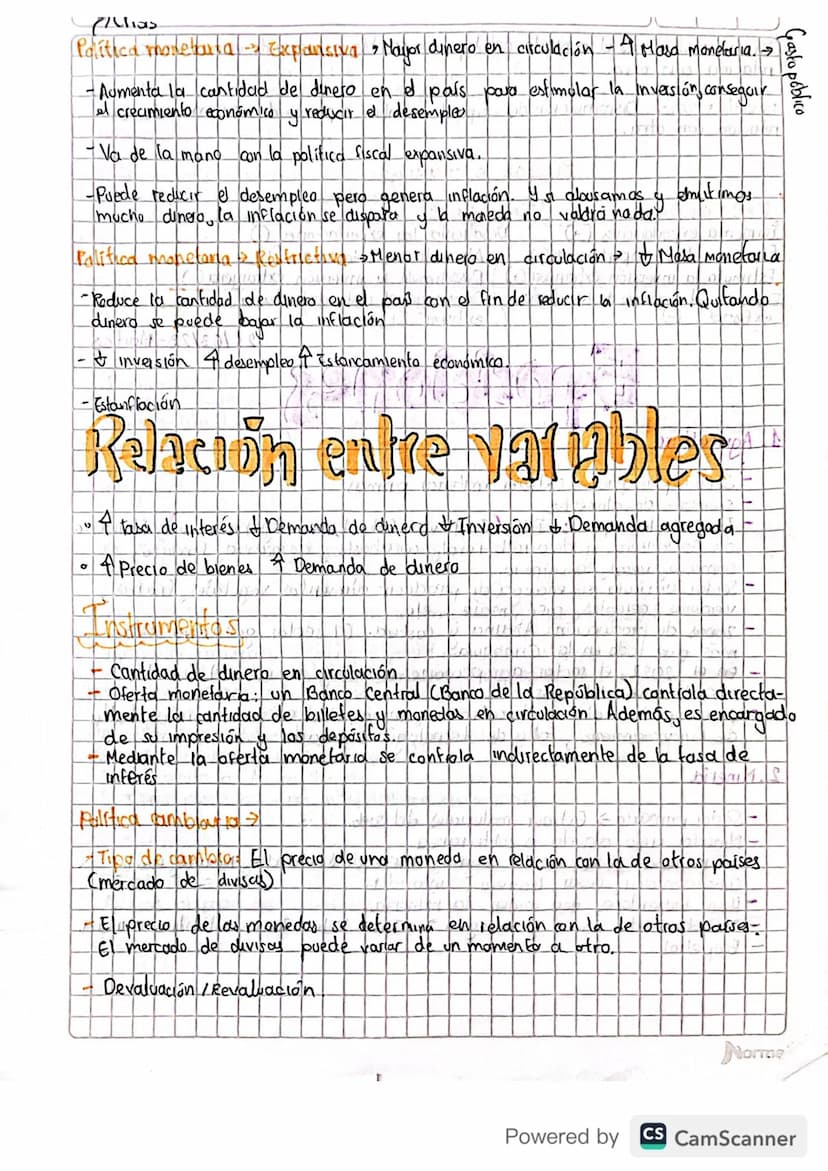 Política monetaria → Expansiva → Mayor dinero en circulación - ↑ Masa monetaria. →
Gasto público
- Aumenta la cantidad de dinero en el país para estimular la inversión, conseguir
el crecimiento económico y reducir el desempleo
- Va de la mano con la política fiscal expansiva.
- Puede reducir el desempleo pero genera inflación. Y si abusamos y emitimos
mucho dinero, la inflación se dispara y la moneda no valdrá nada.
Política monetaria → Restrictiva → Menor dinero en circulación → ↓ Masa monetaria
- Reduce la cantidad de dinero en el país con el fin de reducir la inflación. Quitando
dinero se puede bajar la inflación
- ↓ inversión ↑ desempleo ↑ Estancamiento económico.
- Estanflación
Relación entre variables
• ↑ tasa de interés ↓ Demanda de dinero ↓ Inversión ↓ Demanda agregada
• ↑ Precio de bienes ↑ Demanda de dinero
Instrumentos
- Cantidad de dinero en circulación
- Oferta monetaria: un Banco Central (Banco de la República) controla directa-
mente la cantidad de billetes y monedas en circulación. Además, es encargado
de su impresión y los depósitos.
- Mediante la oferta monetaria se controla indirectamente de la tasa de
interés
Política cambiaria →
- Tipo de cambio: El precio de una moneda en relación con la de otros países
(mercado de divisas)
- El precio de las monedas se determina en relación con la de otros países.
El mercado de divisas puede variar de un momento a otro.
- Devaluación / Revaluación.
Norma
Powered by CS CamScanner